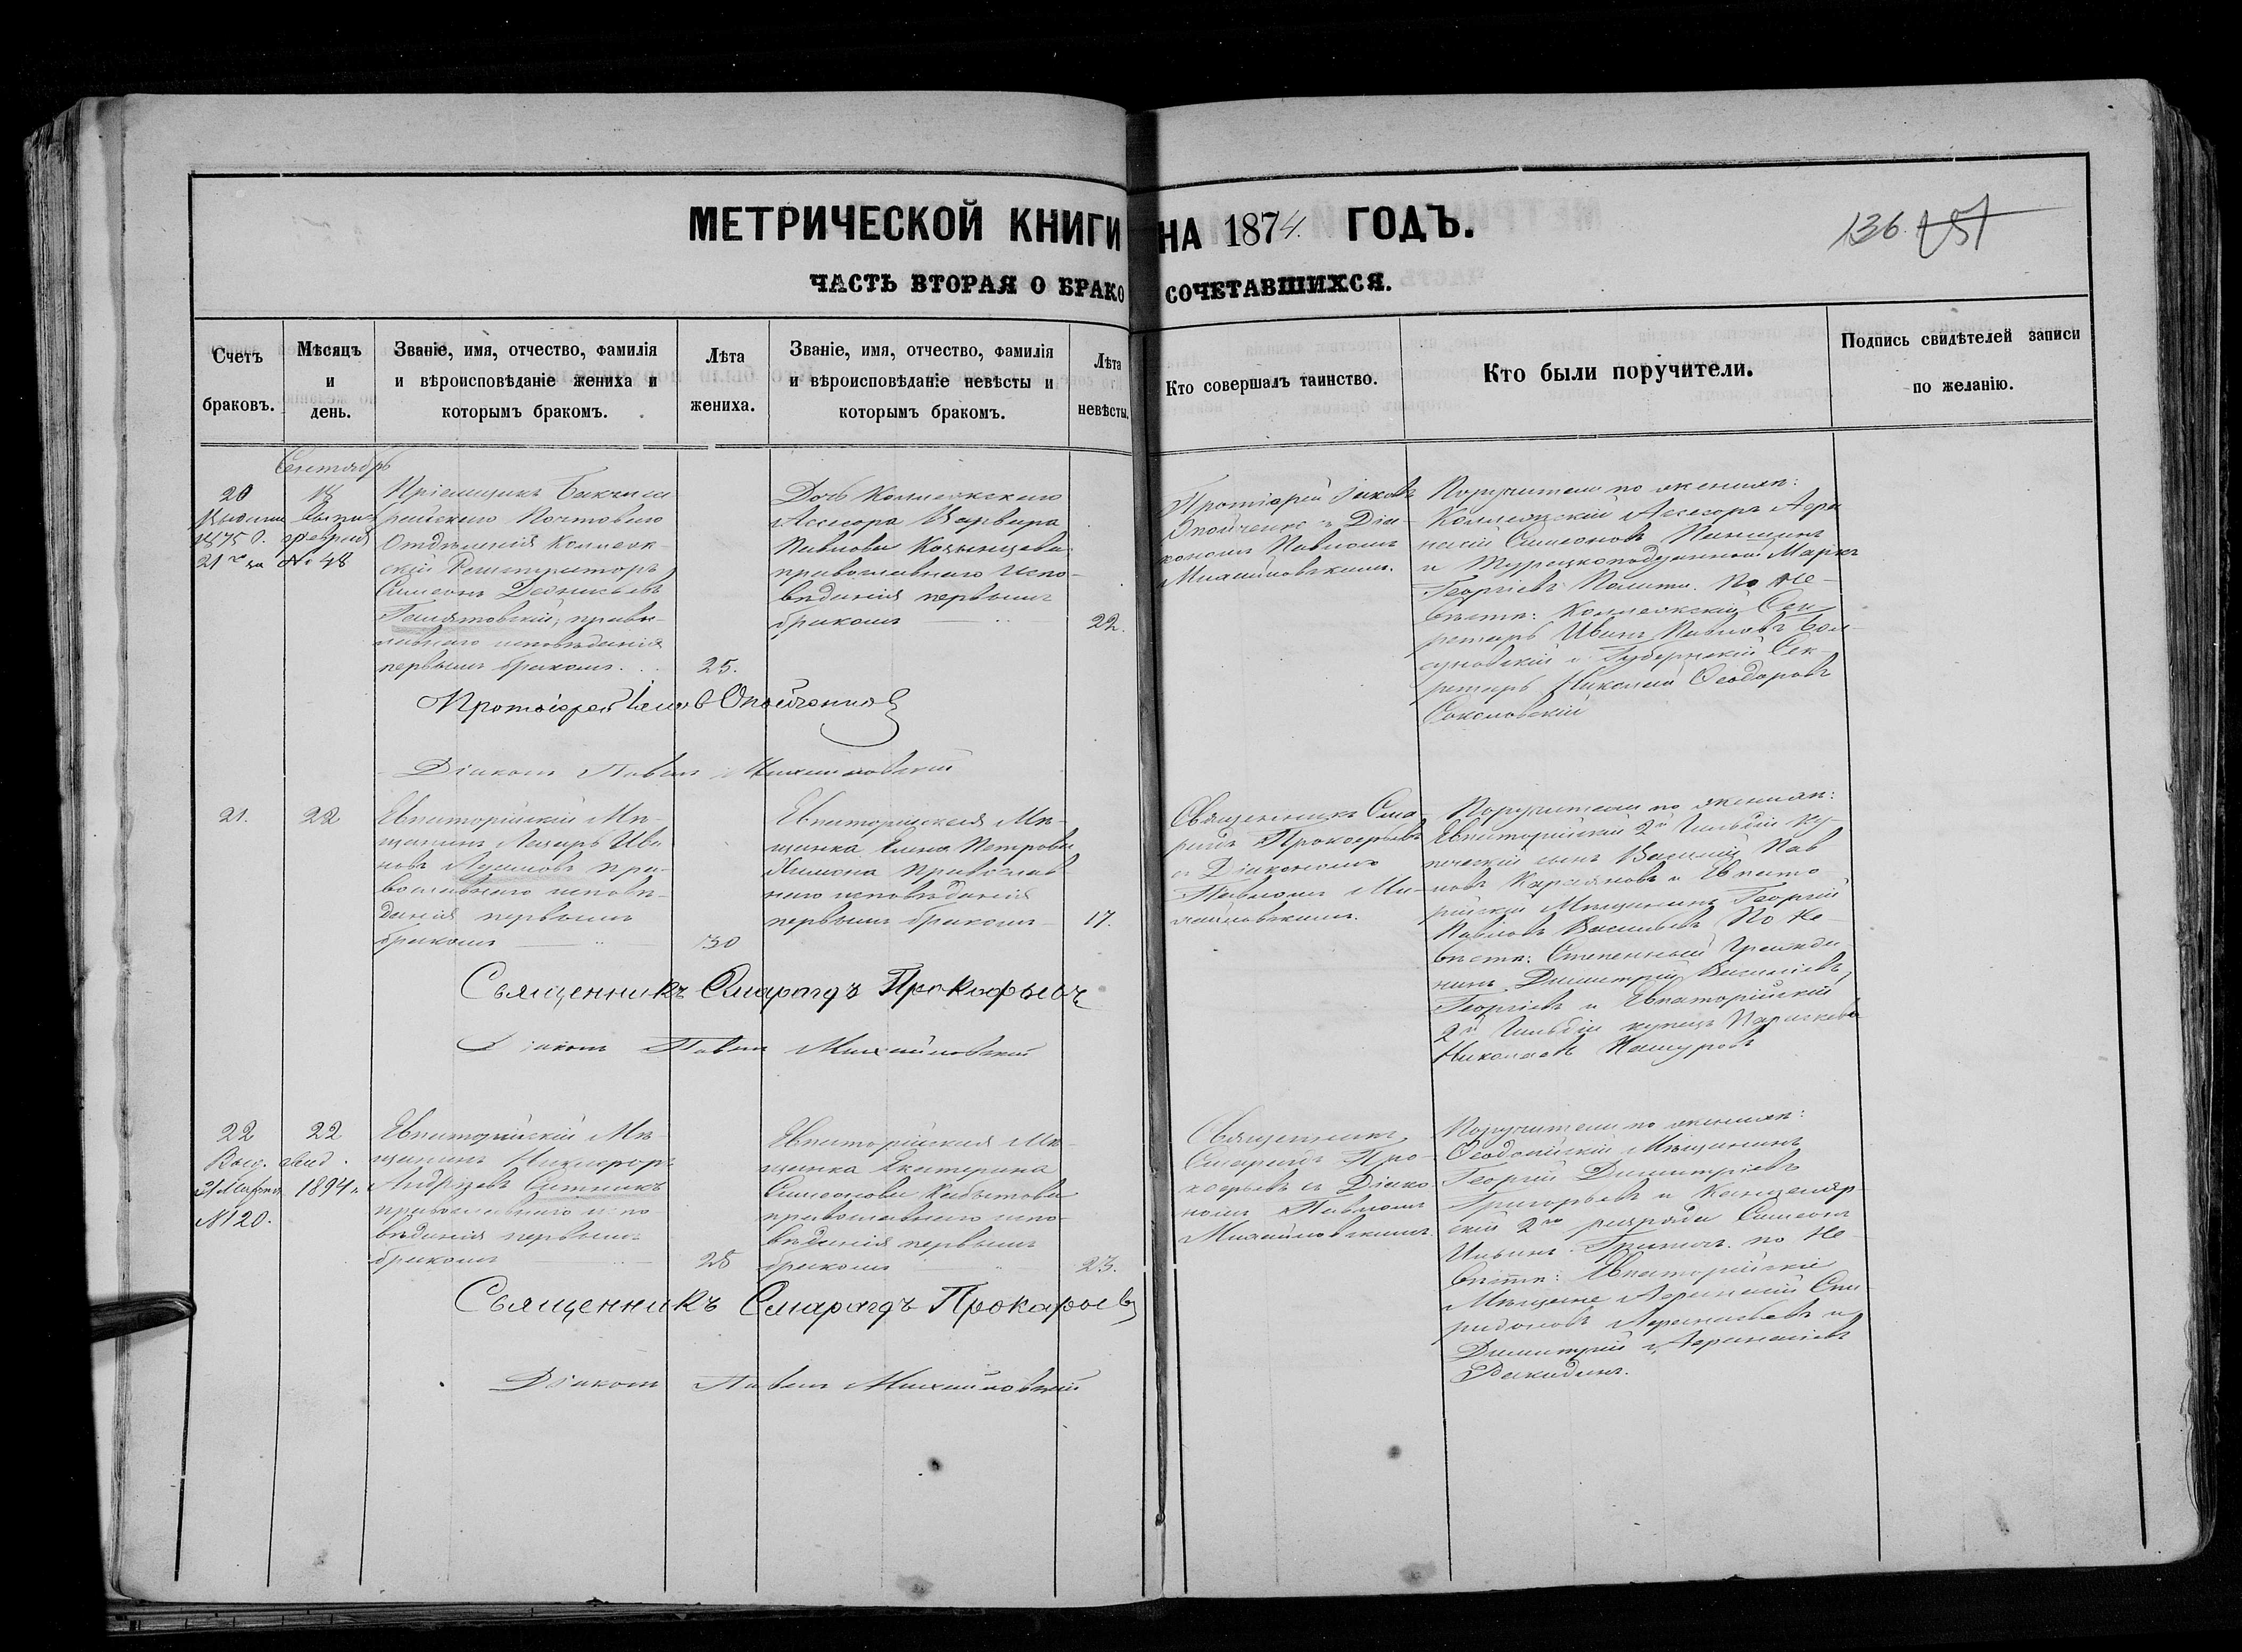 МЕТРИЧЕСКОЙ КНИГИ НА 1874. ГОДЪ.
136. 151
ЧАСТЬ ВТОРАЯ О БРАКОСОЧЕТАВШИХСЯ.
Счетъ браковъ.
Мѣсяцъ и день.
Званіе, имя, отчество, фамилія и вѣроисповѣданіе жениха и которымъ бракомъ.
Лѣта жениха.
Званіе, имя, отчество, фамилія и вѣроисповѣданіе невѣсты и которымъ бракомъ.
Лѣта невѣсты.
Кто совершалъ таинство.
Кто были поручители.
Подпись свидѣтелей записи по желанію.
Сентябрь
20
18
1875 г. февраля
21 за № 48
Пріемщикъ
Почтоваго
Отдѣленія Коллеж-
скій Регистраторъ
Симеонъ
православнаго исповѣданія
первымъ бракомъ.
25.
Дочь Коллежскаго
Ассесора Варвара
Павлова
православнаго испо-
вѣданія первымъ
бракомъ
22.
Протоіерей Іаковъ
съ Діа-
кономъ Павломъ
Михайловскимъ.
Поручители по женихѣ:
Коллежскій Ассесоръ Афа
насій Симеоновъ
и Турецкоподданный Маркъ
Георгіевъ По не-
вѣстѣ: Коллежскій Сек
ретарь Иванъ Павловъ
и Губернскій Сек-
ретарь Николай Ѳеодоровъ
Соколовскій
Протоіерей Іаковъ
Діаконъ Павелъ Михайловскій
21.
22
Евпаторійскій Мѣ-
щанинъ Лазарь Ива
новъ пра-
вославнаго исповѣ-
данія первымъ
бракомъ
30
Евпаторійская Мѣ-
щанка Елена Петрова
Православ
наго исповѣданія
первымъ бракомъ
17.
Священникъ Сма
рагдъ Прокофьевъ
съ Діакономъ
Павломъ Ми-
хайловскимъ.
Поручители по женихѣ:
Евпаторійскій 2й Гильдіи Ку-
печескій сынъ Василій Пав
ловъ и Евпато
рійскій Мѣщанинъ Георгій
Павловъ Васильевъ По не-
вѣстѣ: Степенный Гражда
нинъ Димитрій Василіевъ
Георгіевъ и Евпаторійскій
2й Гильдіи купецъ
Николаевъ
Священникъ Смарагдъ Прокофьевъ
Діаконъ Павелъ Михайловскій
22
22
Выд. свид.
31 Марта 1894 г.
№ 120.
Евпаторійскій Мѣ-
щанинъ Никифоръ
Андреевъ Ситникъ
православнаго испо-
вѣданія первымъ
бракомъ
25
Евпаторійская Мѣ-
щанка Екатерина
Симеонова
православнаго испо-
вѣданія первымъ
бракомъ
23.
Священникъ
Смарагдъ Про-
кофьевъ съ Діако
номъ Павломъ
Михайловскимъ.
Поручители по женихѣ:
Ѳеодосійскій Мѣщанинъ
Георгій Димитріевъ
Григорьевъ и Канцеляр-
скій 2го разряда Симеонъ
Ильинъ по не-
вѣстѣ: Евпаторійскіе
Мѣщане Афанасій Спи
ридоновъ Афанасьевъ и
Димитрій Афанасіевъ
Священникъ Смарагдъ Прокофьевъ
Діаконъ Павелъ Михайловскій